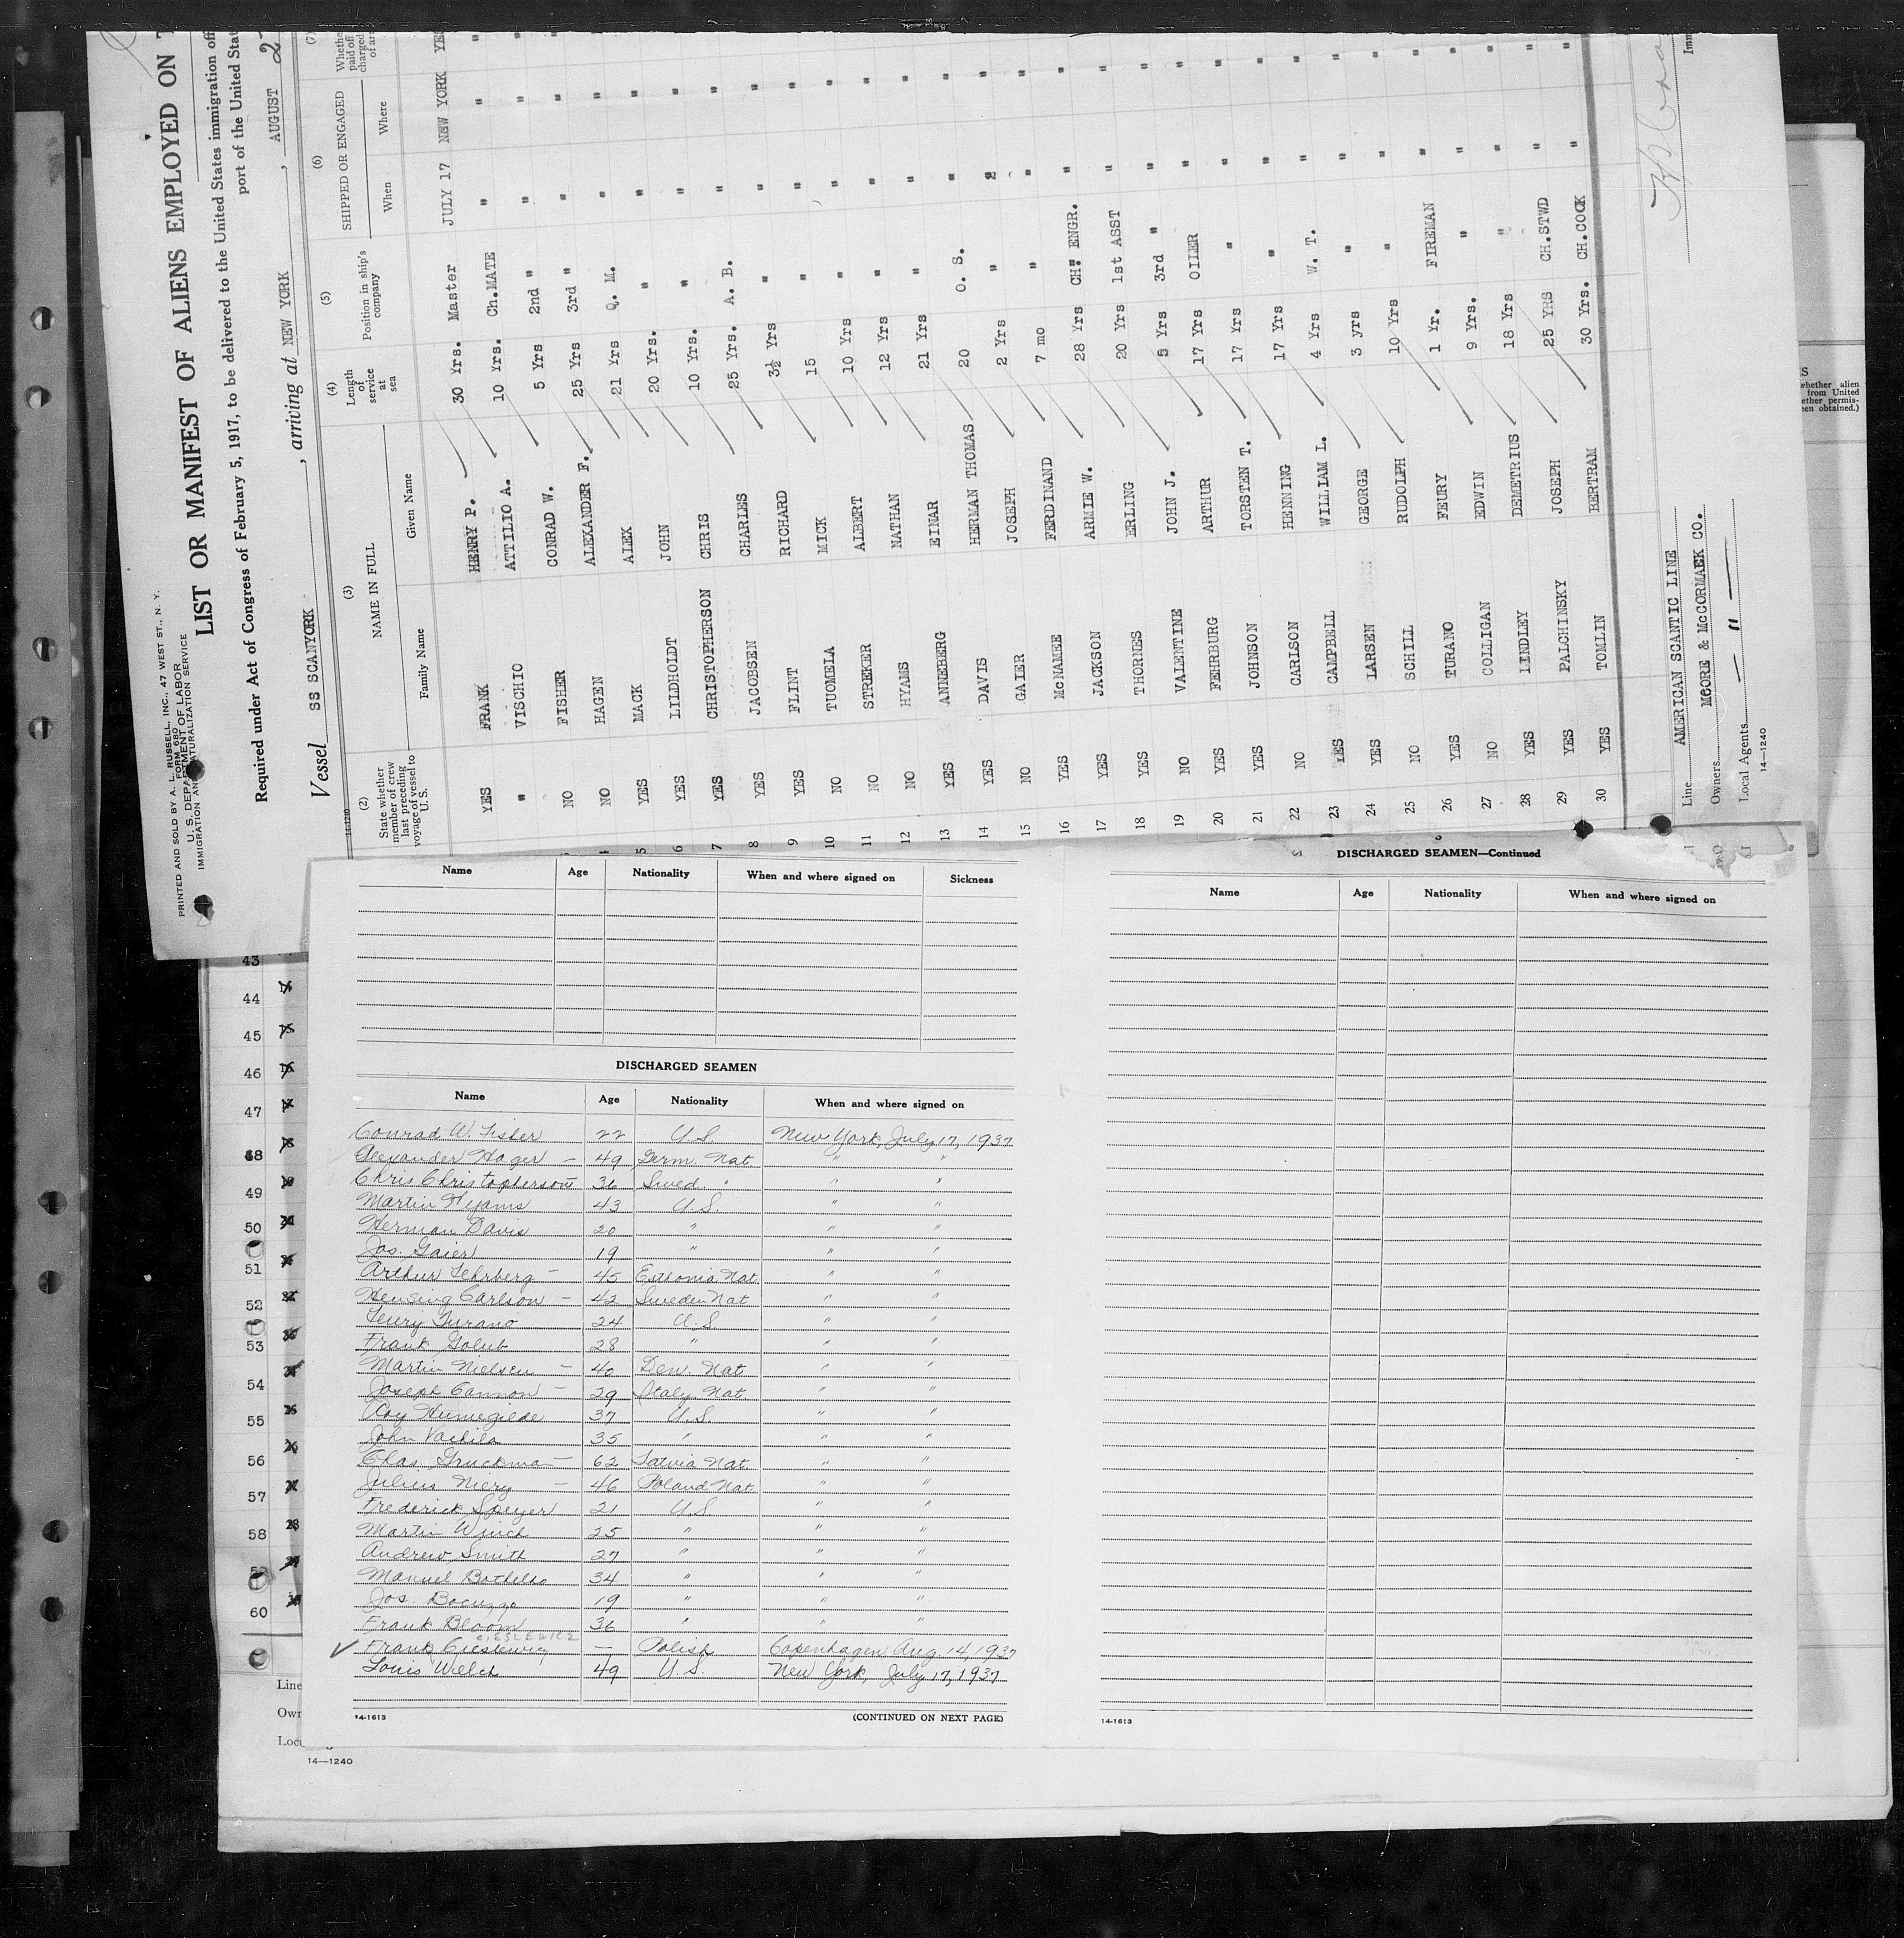 PRINTED AND SOLD BY A. L. RUSSELL, INC., 47 WEST ST., N. Y.
FORM 680
U. S. DEPARTMENT OF LABOR
IMMIGRATION AND NATURALIZATION SERVICE
LIST OR MANIFEST OF ALIENS EMPLOYED ON T
Required under Act of Congress of February 5, 1917, to be delivered to the United States immigration off
port of the United Stat
Vessel SS SCANYORK , arriving at NEW YORK , AUGUST 2
14-1240
(2) (3) (4) (5) (6) (7)
State whether member of crew last preceding voyage of vessel to U.S. NAME IN FULL Length of service at sea Position in ship's company SHIPPED OR ENGAGED Whethe paid off charged of arr
Family Name Given Name When Where
YES FRANK HENRY P. 30 Yrs. Master JULY 17 NEW YORK YES
" VISCHIO ATTILIO A. 10 Yrs. Ch.MATE " " "
NO FISHER CONRAD W. 5 Yrs 2nd " " " "
4 NO HAGEN ALEXANDER F. 25 Yrs 3rd " " "
5 YES MACK ALEX 21 Yrs Q. M. " " "
6 YES LILDHOLDT JOHN 20 Yrs. " " " "
7 YES CHRISTOPHERSON CHRIS 10 Yrs. " " " "
8 YES JACOBSEN CHARLES 25 Yrs. A. B. " " "
9 YES FLINT RICHARD 3½ Yrs " " " "
10 NO TUOMELA MICK 15 " " " "
11 NO STREKER ALBERT 10 Yrs " " " "
12 NO HYAMS NATHAN 12 Yrs " " " "
13 YES ANNEBERG EINAR 21 Yrs " " " "
14 YES DAVIS HERMAN THOMAS 20 O. S. " " "
15 NO GAIER JOSEPH 2 Yrs " " " "
16 YES McNAMEE FERDINAND 7 mo " " " "
17 YES JACKSON ARMIE W. 28 Yrs CH. ENGR. " " "
18 YES THORNES ERLING 20 Yrs 1st ASST " " "
19 NO VALENTINE JOHN J. 5 Yrs 3rd " " " "
20 YES FEHRBURG ARTHUR 17 Yrs OILER " " "
21 YES JOHNSON TORSTEN T. 17 Yrs " " " "
22 NO CARLSON HENNING 17 Yrs " " " "
23 YES CAMPBELL WILLIAM L. 4 Yrs W. T. " " "
24 YES LARSEN GEORGE 3 yrs " " " "
25 NO SCHILL RUDOLPH 10 Yrs " " " "
26 YES TURANO FEURY 1 Yr. FIREMAN " " "
27 NO COLLIGAN EDWIN 9 Yrs. " " " "
28 YES LINDLEY DEMETRIUS 18 Yrs " " " "
29 YES PALCHINSKY JOSEPH 25 YRS CH.STWD " " "
30 YES TOMLIN BERTRAM 30 Yrs. CH.COCK " " "
Line AMERICAN SCANTIC LINE
Owners MOORE & McCORMAEK CO.
Local Agents — " —
Imm
14-1240
S
whether alien
from United
ether permis-
een obtained.)
43
44
45
46
47
48
49
50
51
52
53
54
55
56
57
58
60
Line
Own
Loca
14—1240
Name Age Nationality When and where signed on Sickness
DISCHARGED SEAMEN
Name Age Nationality When and where signed on
Conrad W. Fisher 22 U.S. New York, July 17, 1937
Alexander Hager — 49 Germ. Nat. " "
Chris Christopherson 36 Swed. " " "
Martin Hyams 43 U.S. " "
Herman Davis 20 " " "
Jos. Gaier 19 " " "
Arthur Fehrberg — 45 Esthonia Nat. " "
Henning Carlson — 42 Sweden Nat " "
Feury Turano 24 U.S. " "
Frank Golub 28 " " "
Martin Nielsen — 40 Den. Nat " "
Joseph Cannon — 29 Italy Nat. " "
Roy Humegilde 37 U.S. " "
John Vachila 35 " " "
Chas. Gruckman — 62 Latvia Nat. " "
Julius Niery — 46 Poland Nat. " "
Frederick Speyer 21 U.S. " "
Martin Winch 25 " " "
Andrew Smith 27 " " "
Manuel Bothello 34 " " "
Jos. Bocuzzo 19 " " "
Frank Bloom 36 " " "
CIESLEWICZ
✓ Frank Cieslewiz — Polish Copenhagen, Aug. 14, 1937
Louis Welch 49 U.S. New York, July 17, 1937
14-1613 (CONTINUED ON NEXT PAGE)
DISCHARGED SEAMEN—Continued
Name Age Nationality When and where signed on
14-1613